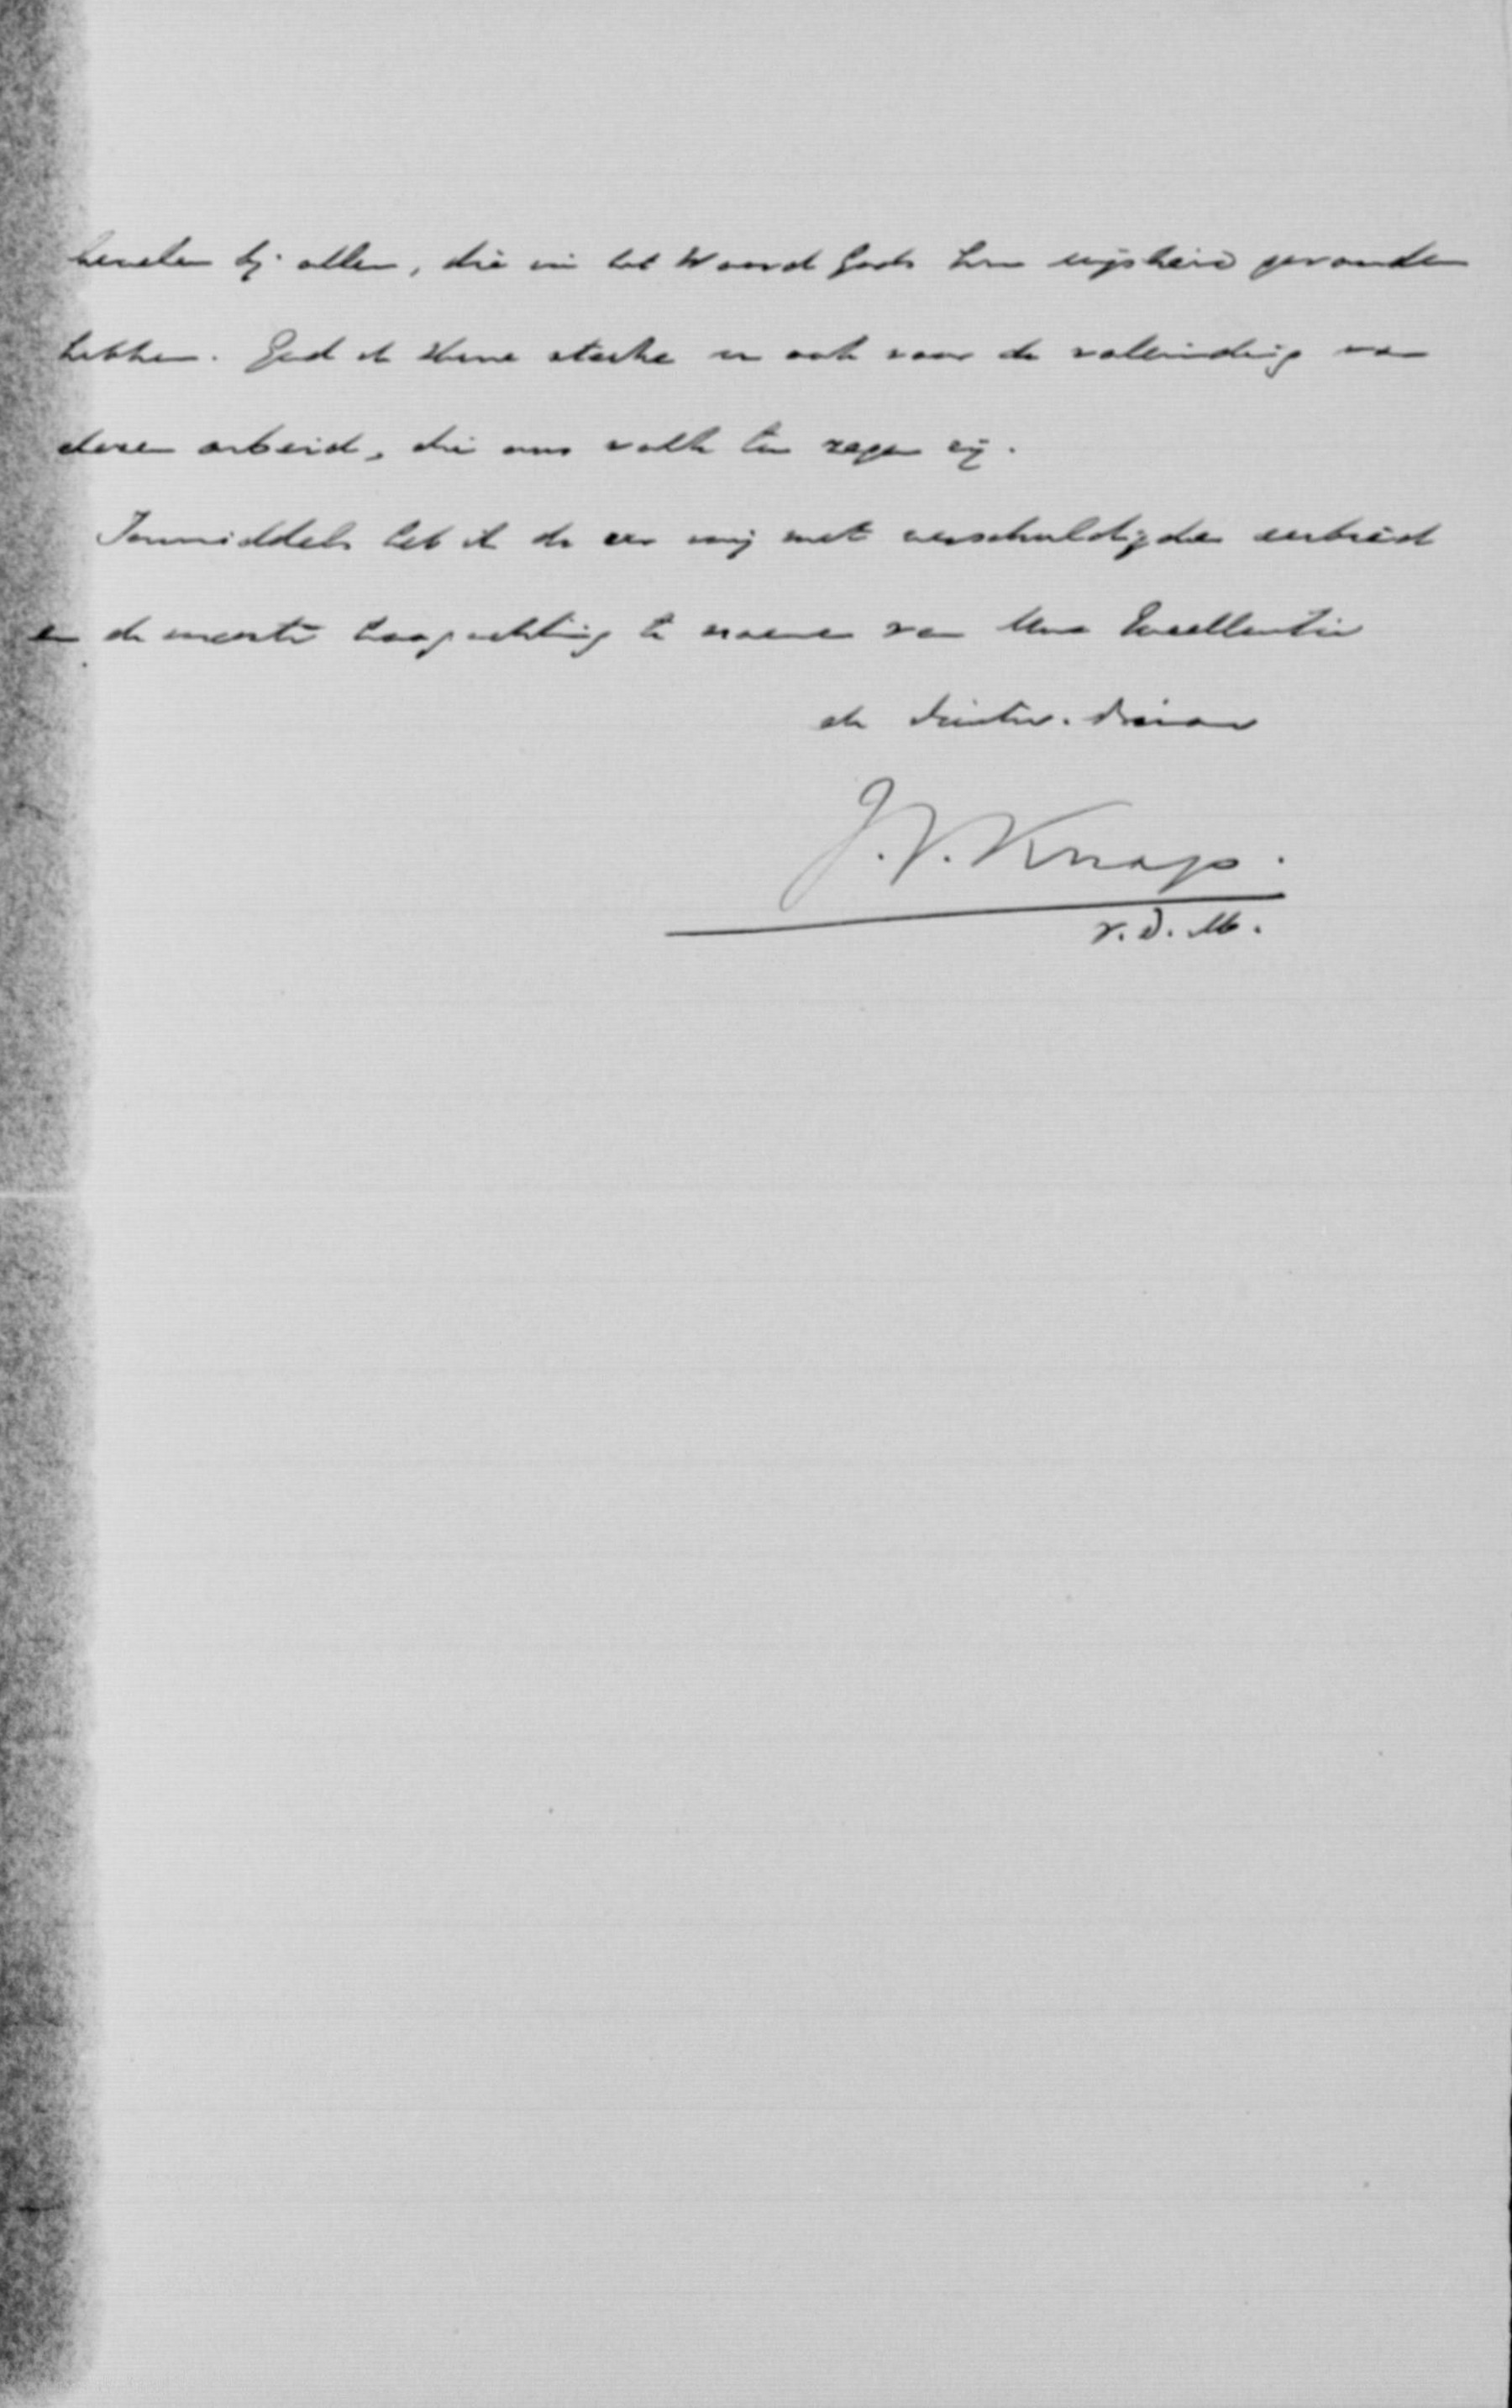 bij allen, die in het Woord Gods hun wijsheid gevonden
hebben. God de Heere sterke u ook voor de voleinding van
dezen arbeid, die ons volk ten zegen zij.
Inmiddels heb ik de eer mij met verschuldigden eerbied
en de meeste hoogachting te noemen van Uwe Excellentie
de dienstw. dienaar
J. J. Knap.
v. D. M.